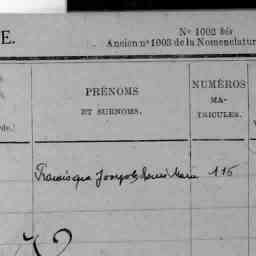 E.
N° 1002 bis
Ancien n° 1003 de la Nomenclatur
PRÉNOMS
ET SURNOMS.
NUMÉROS
MA-
TRICULES.
rde.)
Francisque Joseph Marie 116